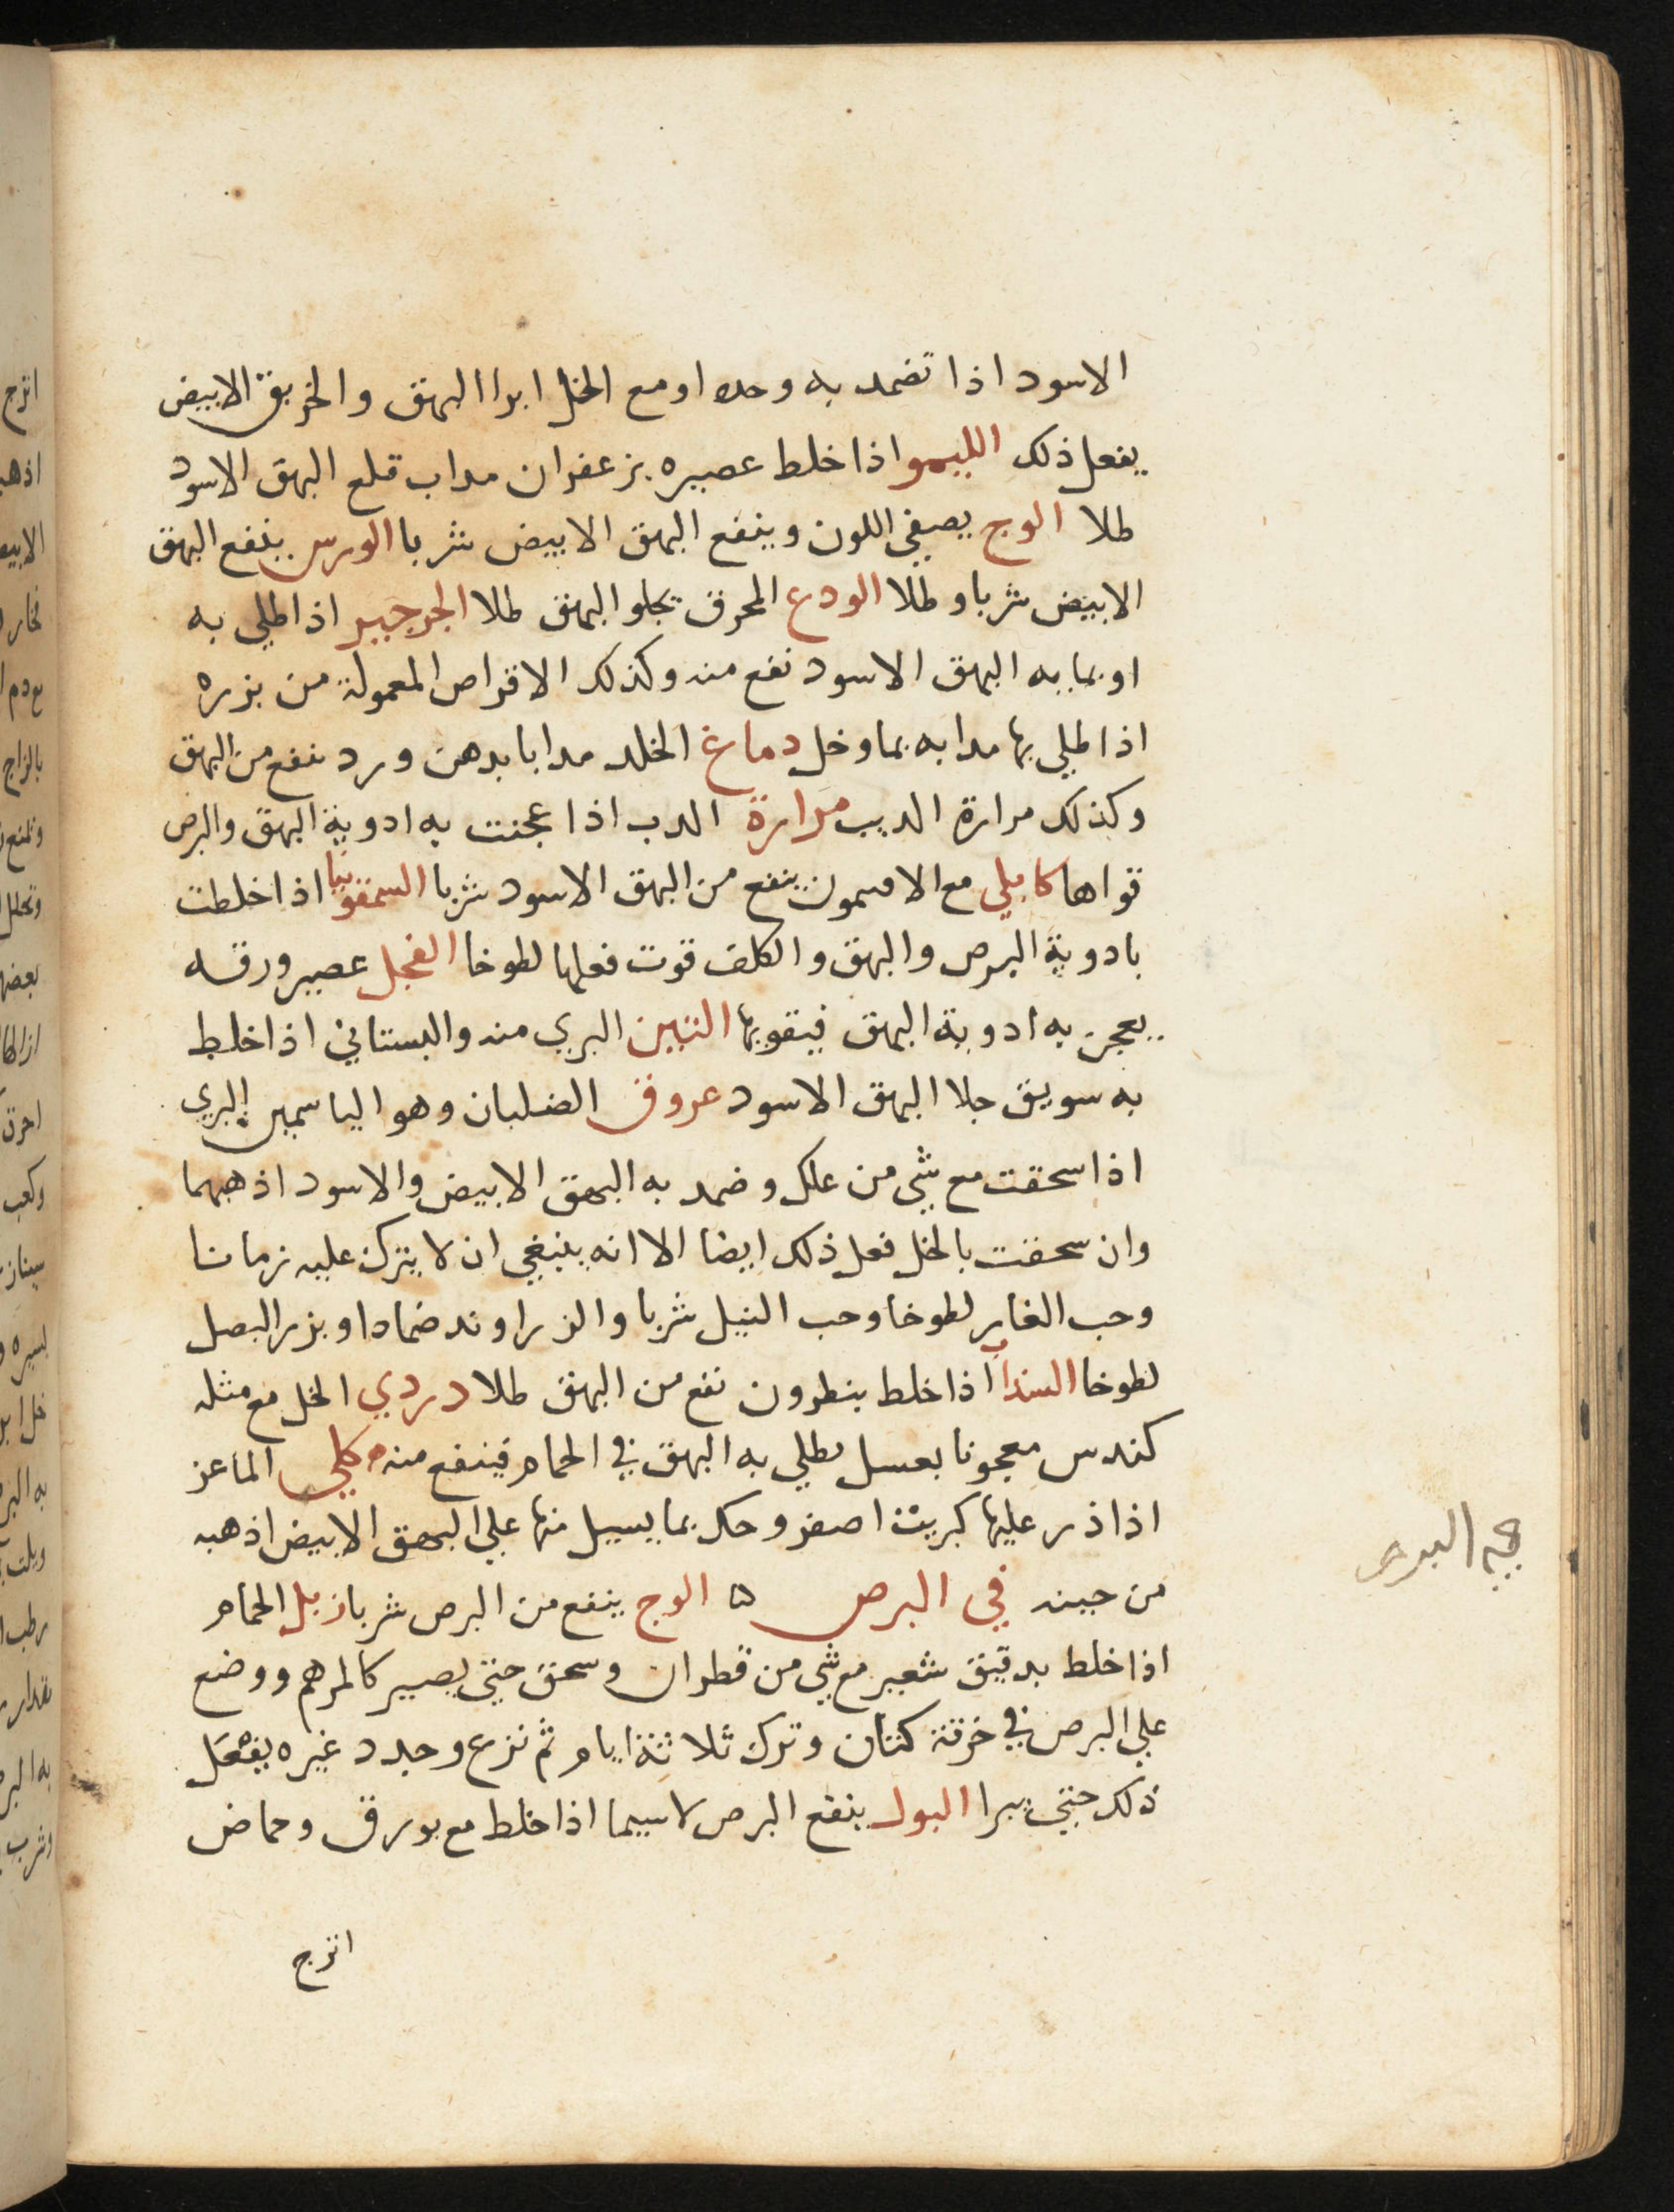 الاسود اذا تضمد به وحده او مع الخل ابرا البهق والخربق الابيض
يفعل ذلك الليمو اذا خلط عصيره بزعفران مداب قلع البهق الاسود
طلا الوج يصفي اللون وينفع البهق الابيض شربا الورس ينفع البهق
الابيض شربا وطلا الودع المحرق يجلو البهق طلا الجرجير اذا طلي به
او بمايه البهق الاسود نفع منه وكذلك الاقراص المعمولة من بزره
اذا طلي بها مدابه بما وخل دماغ الخلد مدابا بدهن ورد ينفع من البهق
وكذلك مرارة الديب مرارة الدب اذا عجنت به ادوية البهق والبرص
قواها كابلي مع الافتيمون ينفع من البهق الاسود شربا السمقونيا اذا خلطت
بادوية البرص والبهق والكلف قوت فعلها لطوخا الفجل عصير ورقه
يعجن به ادوية البهق فيقويها التين البري منه والبستاني اذا خلط
به سويق جلا البهق الاسود عروق الضلبان وهو الياسمين البري
اذا سحقت مع شي من علك وضمد به البهق الابيض والاسود اذهبهما
وان سحقت بالخل فعل ذلك ايضا الا انه ينبغي ان لا يترك عليه زمانا
وحب الغار لطوخا وحب النيل شربا والزراوند ضمادا وبزر البصل
لطوخا السذاب اذا خلط بنطرون نفع من البهق طلا دردي الخل مع مثله
كندس معجونا بعسل يطلي به البهق في الحمام فينفع منه كلي الماعز
اذا ذر عليها كبريت اصفر وحك بما يسيل منها علي البهق الابيض اذهبه
من حينه في البرص ه الوج ينفع من البرص شربا زبل الحمام
اذا خلط بدقيق شعير مع شي من قطران وسحق حتي يصير كالمرهم ووضع
علي البرص في خرقة كتان وترك ثلاثة ايام ثم نزع وجدد غيره يفعل
ذلك حتي يبرا البول ينفع البرص لاسيما اذا خلط مع بورق وحماض
اترج
البرص